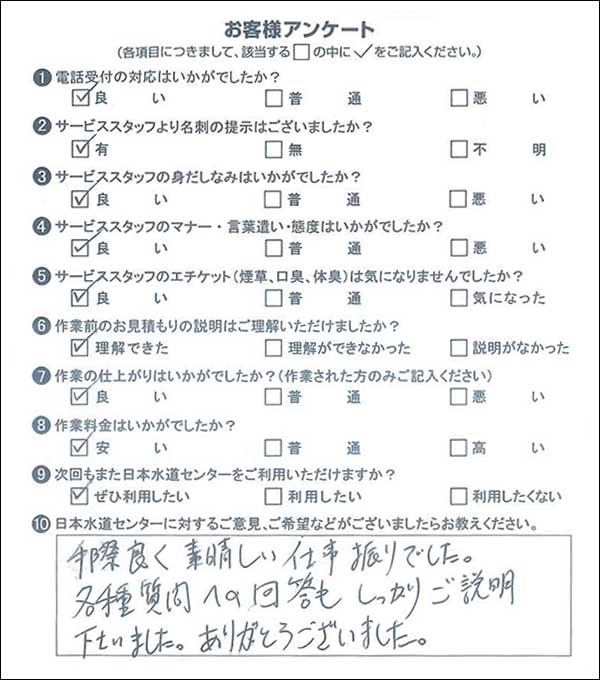 お客様アンケート
(各項目につきまして、該当する□の中に✓をご記入ください。)
❶電話受付の対応はいかがでしたか?
☑良い □普通 □悪い
❷サービススタッフより名刺の提示はございましたか?
☑有 □無 □不明
❸サービススタッフの身だしなみはいかがでしたか?
☑良い □普通 □悪い
❹サービススタッフのマナー・言葉遣い・態度はいかがでしたか?
☑良い □普通 □悪い
❺サービススタッフのエチケット(煙草、口臭、体臭)は気になりませんでしたか?
☑良い □普通 □気になった
❻作業前のお見積もりの説明はご理解いただけましたか?
☑理解できた □理解ができなかった □説明がなかった
❼作業の仕上がりはいかがでしたか?(作業された方のみご記入ください)
☑良い □普通 □悪い
❽作業料金はいかがでしたか?
☑安い □普通 □高い
❾次回もまた日本水道センターをご利用いただけますか?
☑ぜひ利用したい □利用したい □利用したくない
❿日本水道センターに対するご意見、ご希望などがございましたらお教えください。
手際良く素晴しい仕事振りでした。
各種質問への回答もしっかりご説明
下さいました。ありがとうございました。